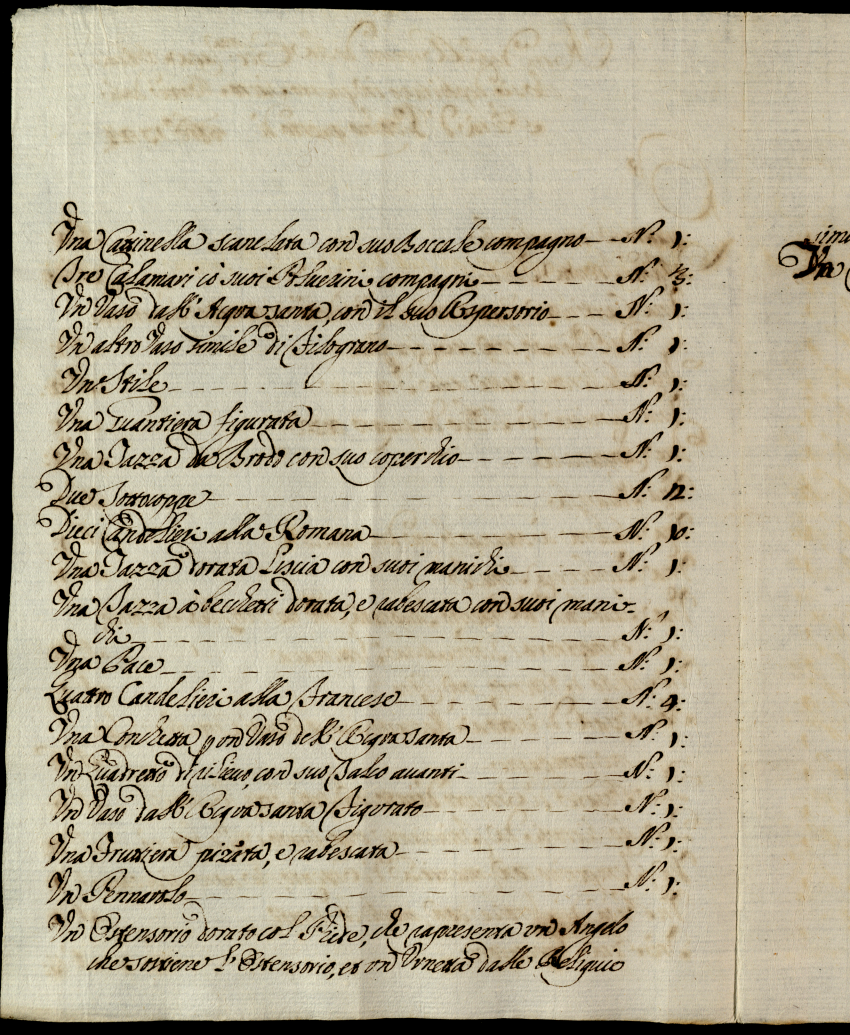 Una Cazinella scanelata con suo Boccale compagno N.º 1:
Tre Calamari cõ suoi Poluerini compagni N.º 3:
Un Vaso dall' Acqua santa, con il suo Aspersorio N.º 1:
Un altro Vaso simile di Filograno N.º 1:
Un Stile N.º 1:
Una Guantiera figurata N.º 1:
Una Tazza da Brodo con suo coperchio N.º 1:
Due Sottocoppe N.º 12:
Dieci Candelieri alla Romana N.º 10:
Una Tazza dorata Liscia con suoi manichi N.º 1:
Una Tazza à becchetti dorata, e rabescata con suoi mani-
chi N.º 1:
Una Pace N.º 1:
Quatro Candelieri alla Francese N.º 4:
Una Conchetta p un Vaso dell' Acqua santa N.º 1:
Un Quadretto di rilievo, con suo Talco avanti N.º 1:
Un Vaso dall' Acqua santa Figurato N.º 1:
Una Fruttiera pizzata, e rabescata N.º 1:
Un Pennarolo N.º 1:
Un Ostensorio dorato col Piede, che rapresenta un Angelo
che sostiene l' Ostensorio, et un Urnetta dalle Reliquie